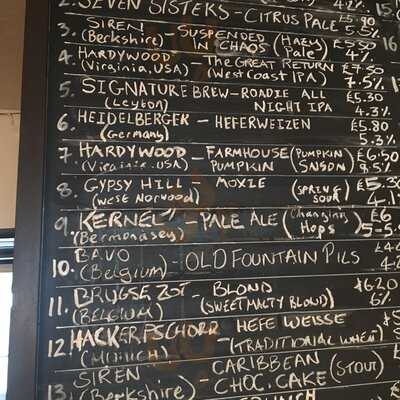 2. SEVEN SISTERS - CITRUS PALE £5.90
5.5%
3. SIREN - SUSPENDED (HAZY £5.50
(Berkshire) IN CHAOS Pale) 4%
4. HARDYWOOD - The GREAT RETURN £7.50
(Virginia, USA) (West Coast IPA) 7.5%
5. SIGNATURE BREW - ROADIE ALL £5.30
(Leyton) NIGHT IPA 4.3%
6. HEIDELBERGER - HEFERWEIZEN £5.80
(Germany) 5.3%
7. HARDYWOOD - FARMHOUSE (PUMPKIN) £6.50
(Virginia, USA) PUMPKIN SAISON 8.5%
8. GYPSY HILL - MOXIE (SPRING £5.30
(West Norwood) SOUR)
9. KERNEL - PALE ALE (Changing £6
(Bermondsey) Hops)
10. BAVO - OLD FOUNTAIN PILS
(Belgium)
11. BRUGSE ZOT - BLOND £6.20
(BELGIUM) (SWEET MALTY BLOND) 6%
12. HACKERPSCHORR - HEFE WEISSE
(MUNICH) (TRADITIONAL WHEAT)
13. SIREN - CARIBBEAN (STOUT)
(Berkshire) CHOC. CAKE
15
16